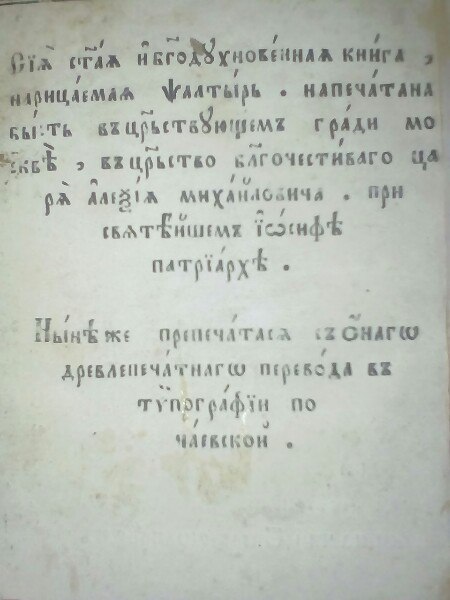 Сїѧ̀ ст҃а́ѧ и҆ бг҃одꙋхнове́ннаѧ кни́га ,
нарица́емаѧ ѱалты́рь . напеча́тана
бы́сть въ цр҃ствꙋющемъ гра́ди мо
сквѣ̀ , въ цр҃ство бл҃гочести́ваго ца
рѧ̀ алеѯі́ѧ миха́йловича . при
свѧтѣ́йшемъ і҆ѡ́сифѣ
патрїа́рхѣ .
Ны́нѣ же препеча́тасѧ съ ѻ҆́нагѡ
древлепеча́тнагѡ перево́да въ
тѷпогра́фїи по
ча́евской .